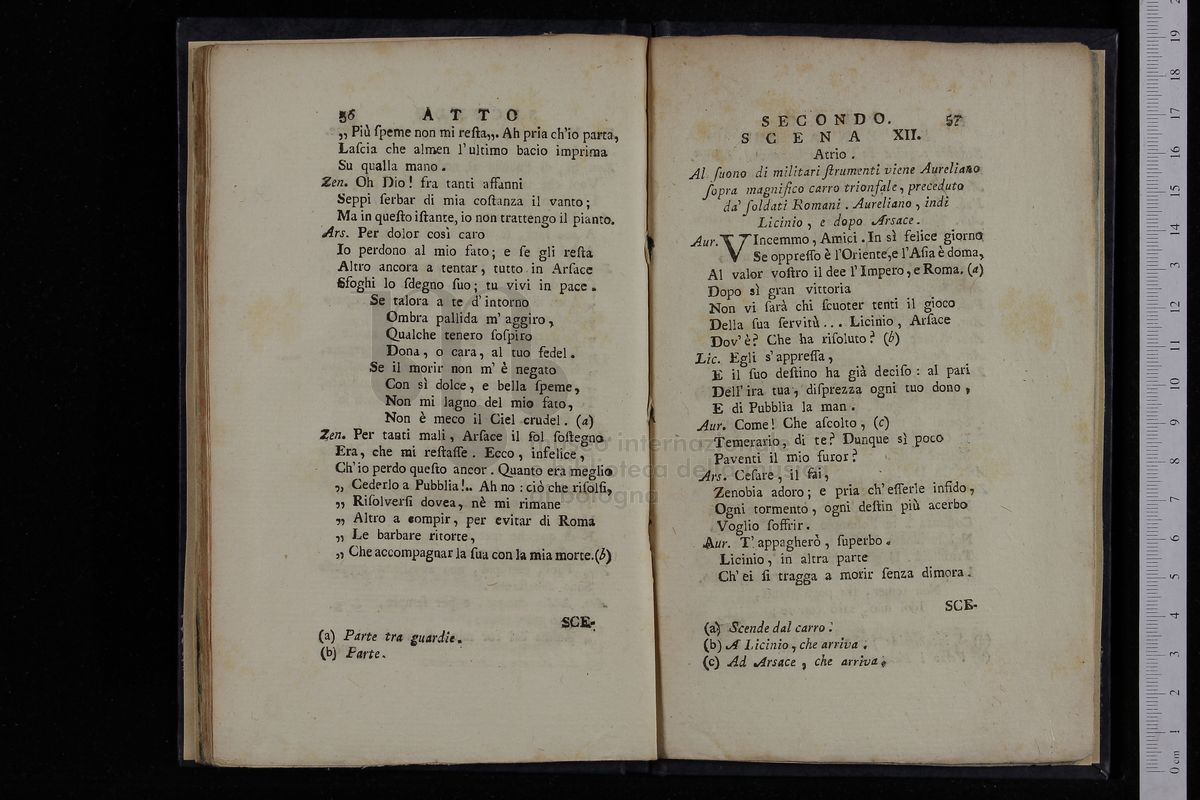 56 ATTO
„ Più ſpeme non mi reſta„. Ah pria ch'io parta,
Laſcia che almen l'ultimo bacio imprima
Su qualla mano.
Zen. Oh Dio! fra tanti affanni
Seppi ſerbar di mia coſtanza il vanto;
Ma in queſto iſtante, io non trattengo il pianto.
Ars. Per dolor così caro
Io perdono al mio fato; e ſe gli reſta
Altro ancora a tentar, tutto in Arſace
Sfoghi lo ſdegno ſuo; tu vivi in pace.
Se talora a te d'intorno
Ombra pallida m'aggiro,
Qualche tenero ſoſpiro
Dona, o cara, al tuo fedel.
Se il morir non m'è negato
Con sì dolce, e bella ſpeme,
Non mi lagno del mio fato,
Non è meco il Ciel crudel. (a)
Zen. Per tanti mali, Arſace il ſol ſoſtegno
Era, che mi reſtaſſe. Ecco, infelice,
Ch'io perdo queſto ancor. Quanto era meglio
„ Cederlo a Pubblia!.. Ah no: ciò che riſolſi,
„ Riſolverſi dovea, nè mi rimane
„ Altro a compir, per evitar di Roma
„ Le barbare ritorte,
„ Che accompagnar la ſua con la mia morte. (b)
SCE-
(a) Parte tra guardie.
(b) Parte.
SECONDO. 57
SCENA XII.
Atrio.
Al ſuono di militari ſtrumenti viene Aureliano
ſopra magnifico carro trionfale, preceduto
da' ſoldati Romani. Aureliano, indi
Licinio, e dopo Arsace.
Aur. VIncemmo, Amici. In sì felice giorno
Se oppreſſo è l'Oriente, e l'Aſia è doma,
Al valor voſtro il dee l'Impero, e Roma. (a)
Dopo sì gran vittoria
Non vi ſarà chi ſcuoter tenti il gioco
Della ſua ſervitù... Licinio, Arſace
Dov'è? Che ha riſoluto? (b)
Lic. Egli s'appreſſa,
E il ſuo deſtino ha già deciſo: al pari
Dell'ira tua, diſprezza ogni tuo dono,
E di Pubblia la man.
Aur. Come! Che aſcolto, (c)
Temerario, di te? Dunque sì poco
Paventi il mio furor?
Ars. Ceſare, il ſai,
Zenobia adoro; e pria ch'eſſerle infido,
Ogni tormento, ogni deſtin più acerbo
Voglio ſoffrir.
Aur. T'appagherò, ſuperbo.
Licinio, in altra parte
Ch'ei ſi tragga a morir ſenza dimora.
SCE-
(a) Scende dal carro.
(b) A Licinio, che arriva.
(c) Ad Arsace, che arriva.